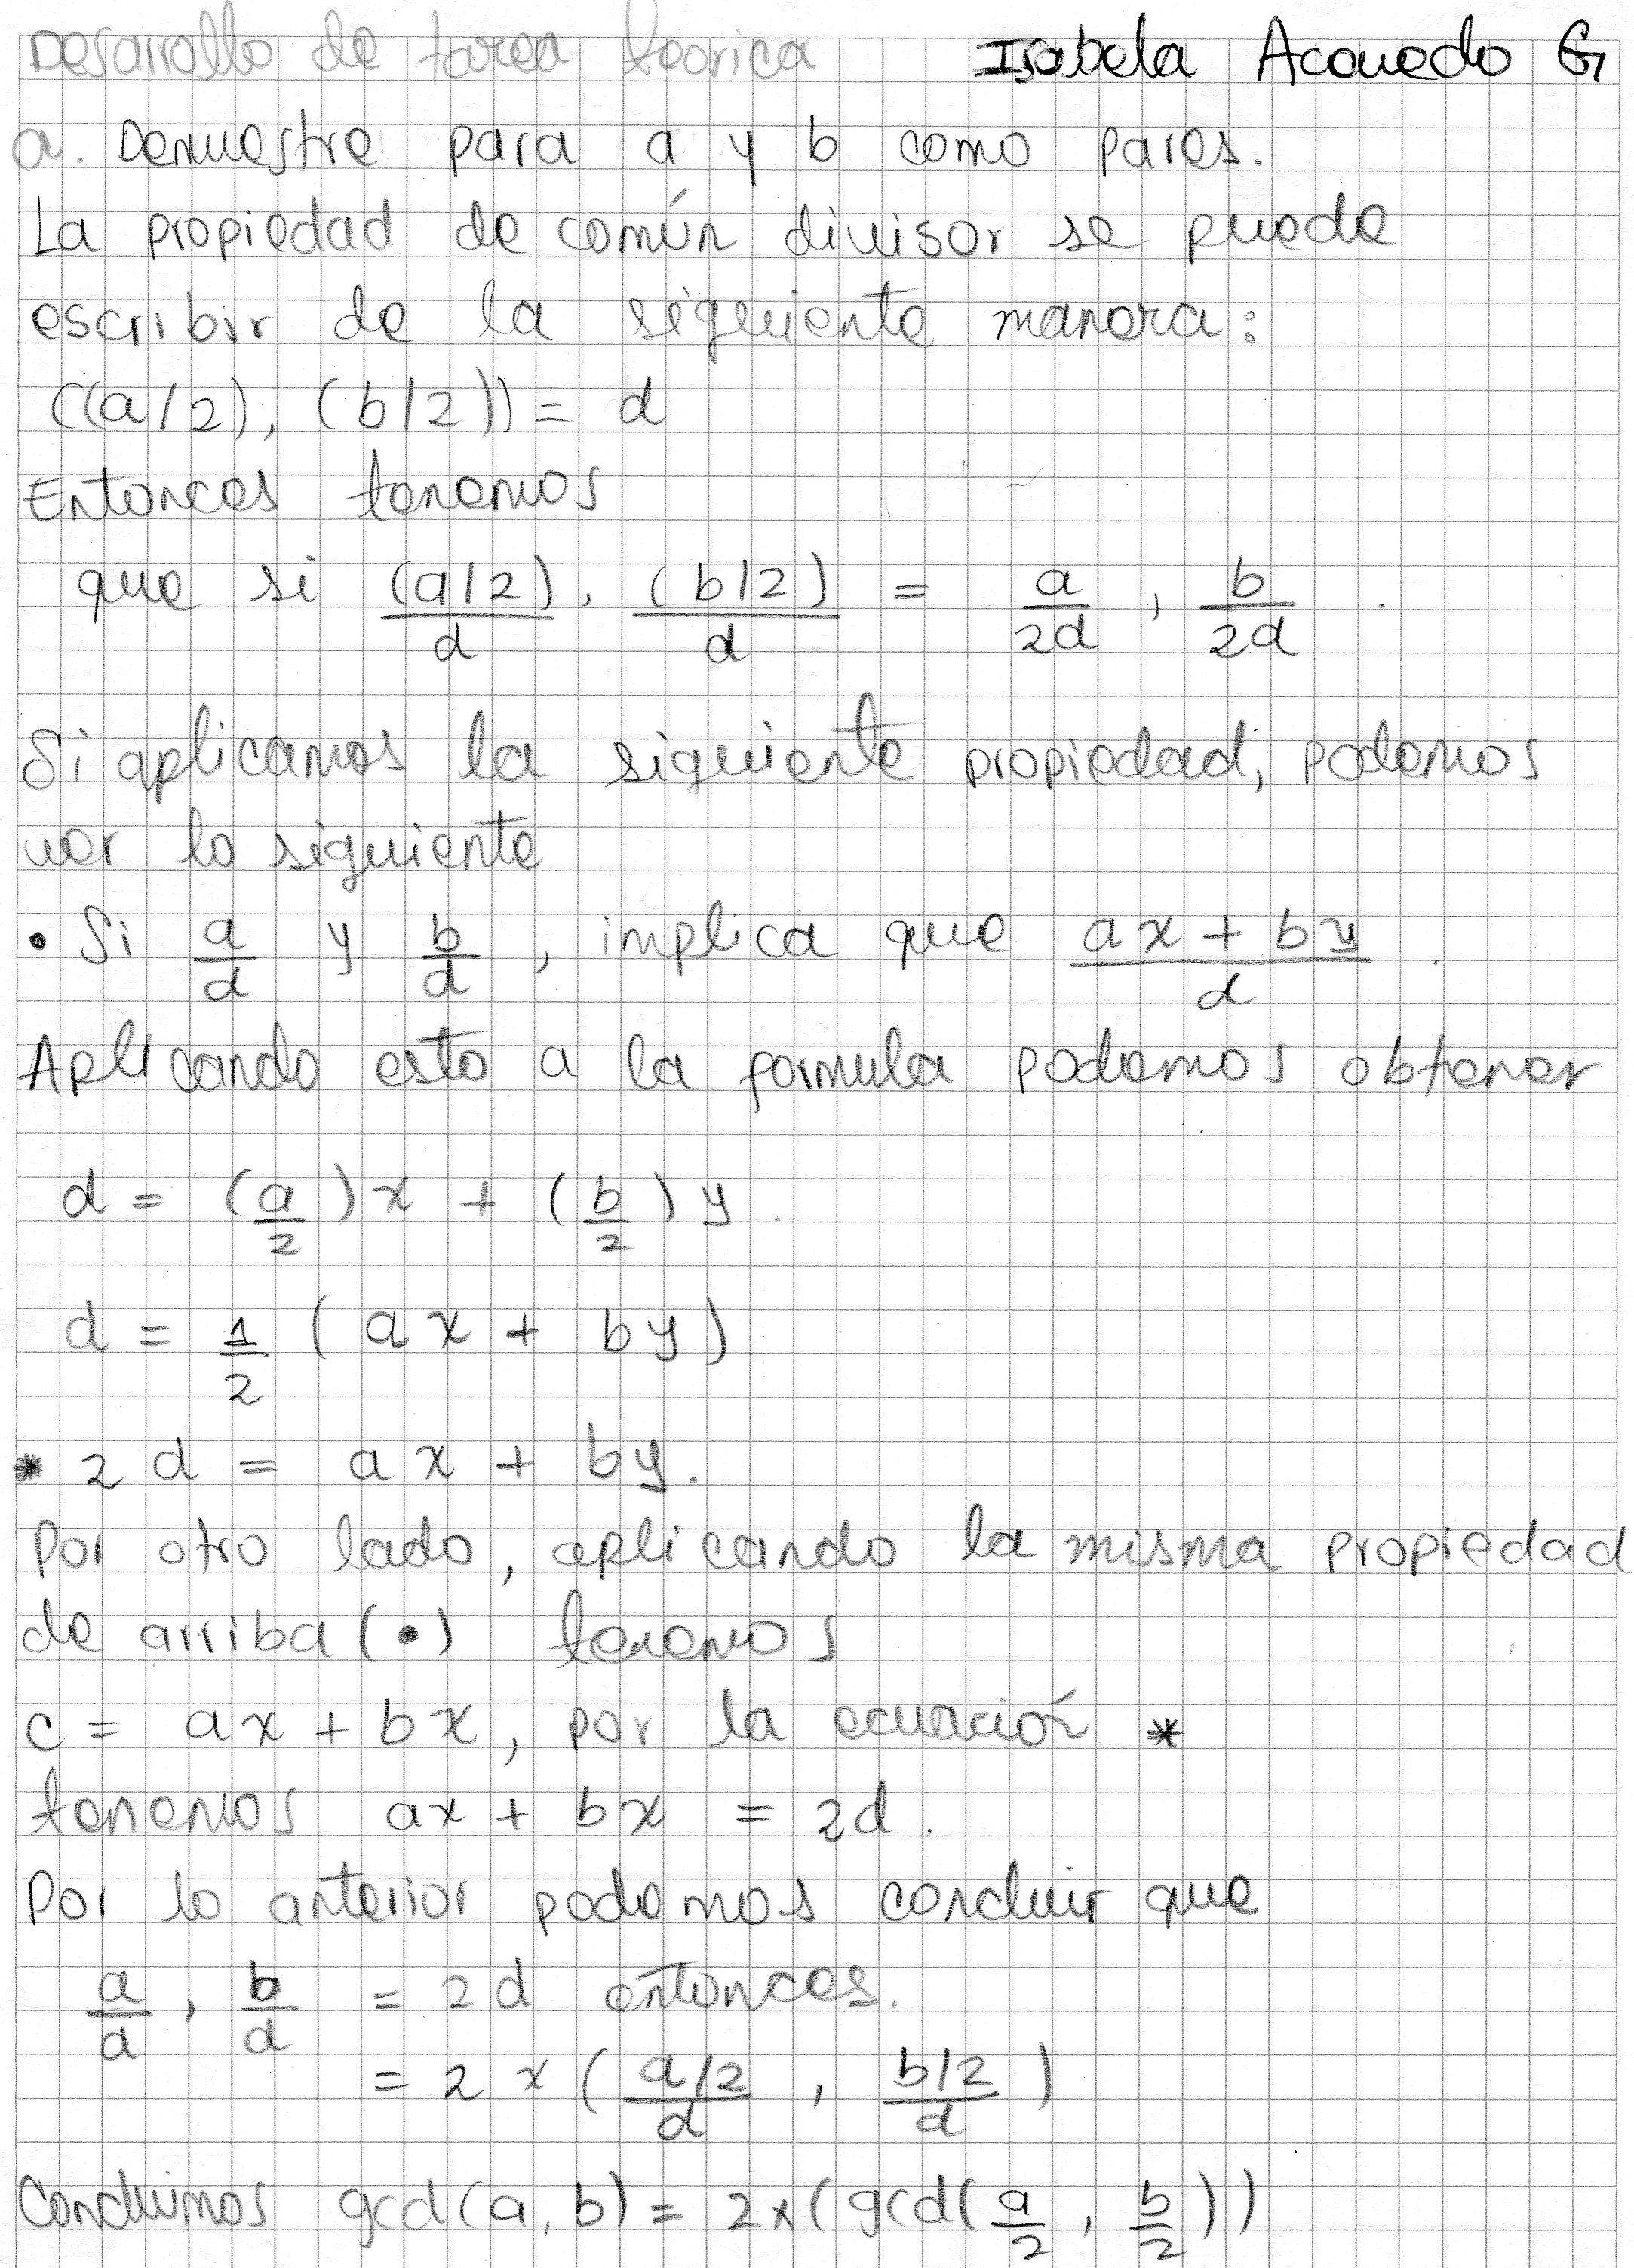 Desarrollo de tarea teorica Isabela Acevedo G
a. Demuestre para a y b como pares.
La propiedad de común divisor se puede
escribir de la siguiente manera:
((a/2), (b/2)) = d
Entonces tenemos
que si (a/2)/d , (b/2)/d = a/2d , b/2d .
Si aplicamos la siguiente propiedad, podemos
ver lo siguiente
• Si a/d y b/d , implica que (ax + by)/d .
Aplicando esto a la formula podemos obtener
d = (a/2)x + (b/2)y.
d = 1/2 (ax + by)
* 2d = ax + by.
Por otro lado, aplicando la misma propiedad
de arriba (•) tenemos
c = ax + bx, por la ecuación *
tenemos ax + bx = 2d.
Por lo anterior podemos concluir que
a/d , b/d = 2d entonces.
= 2 x ( (a/2)/d , (b/2)/d )
Concluimos gcd(a, b) = 2x(gcd(a/2 , b/2))